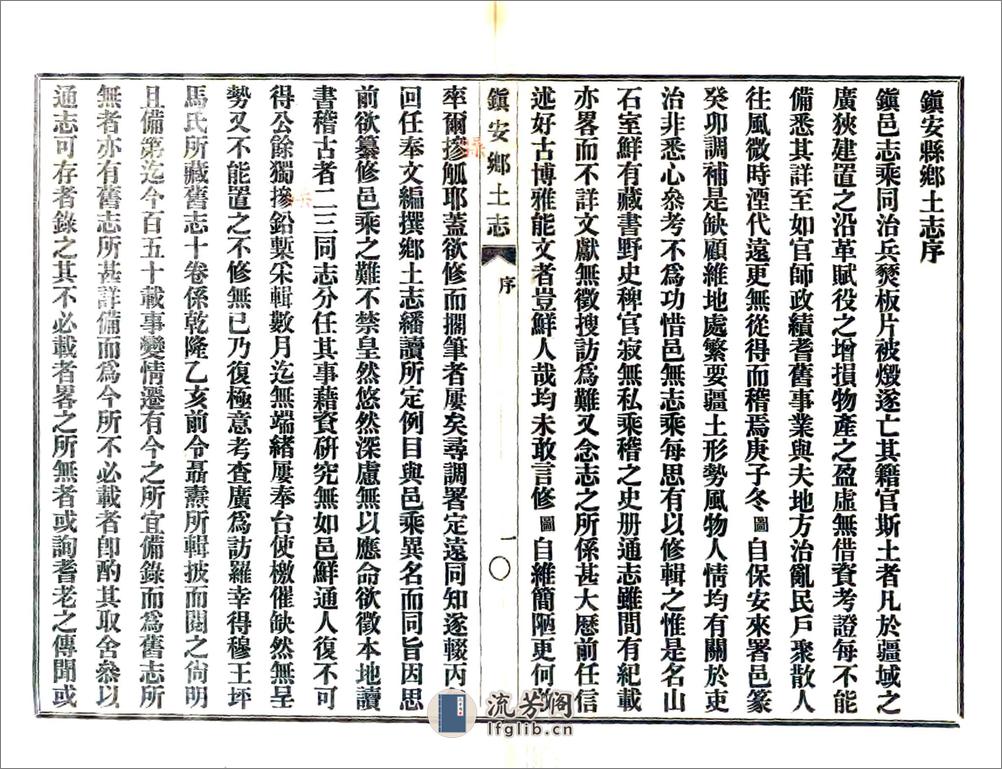 鎭安縣鄉土志序
鎭邑志乘同治兵燹板片被燬遂亡其籍官斯土者凡於疆域之
廣狹建置之沿革賦役之增損物產之盈虛無借資考證每不能
備悉其詳至如官師政績耆舊事業與夫地方治亂民戶聚散人
往風微時湮代遠更無從得而稽焉庚子冬圖自保安來署邑篆
癸卯調補是缺顧維地處繁要疆土形勢風物人情均有關於吏
治非悉心叅考不爲功惜邑無志乘每思有以修輯之惟是名山
石室鮮有藏書野史稗官寂無私乘稽之史册通志雖間有紀載
亦畧而不詳文獻無徵搜訪爲難又念志之所係甚大歷前任信
述好古博雅能文者豈鮮人哉均未敢言修圖自維簡陋更何
鎭安鄉土志 序 一〇
率爾摻觚耶蓋欲修而擱筆者屢矣尋調署定遠同知遂輟丙
回任奉文編撰鄉土志繙讀所定例目與邑乘異名而同旨因思
前欲纂修邑乘之難不禁皇然悠然深慮無以應命欲徵本地讀
書稽古者二三同志分任其事藉資研究無如邑鮮通人復不可
得公餘獨摻鉛槧宋輯數月迄無端緒屢奉台使檄催缺然無呈
勢又不能置之不修無已乃復極意考查廣爲訪羅幸得穆王坪
馬氏所藏舊志十卷係乾隆乙亥前令聶燾所輯披而閱之尙明
且備第迄今百五十載事變情遷有今之所宜備錄而爲舊志所
無者亦有舊志所甚詳備而爲今所不必載者卽酌其取舍叅以
通志可存者錄之其不必載者畧之所無者或詢耆老之傳聞或
流芳阁
lfglib.cn